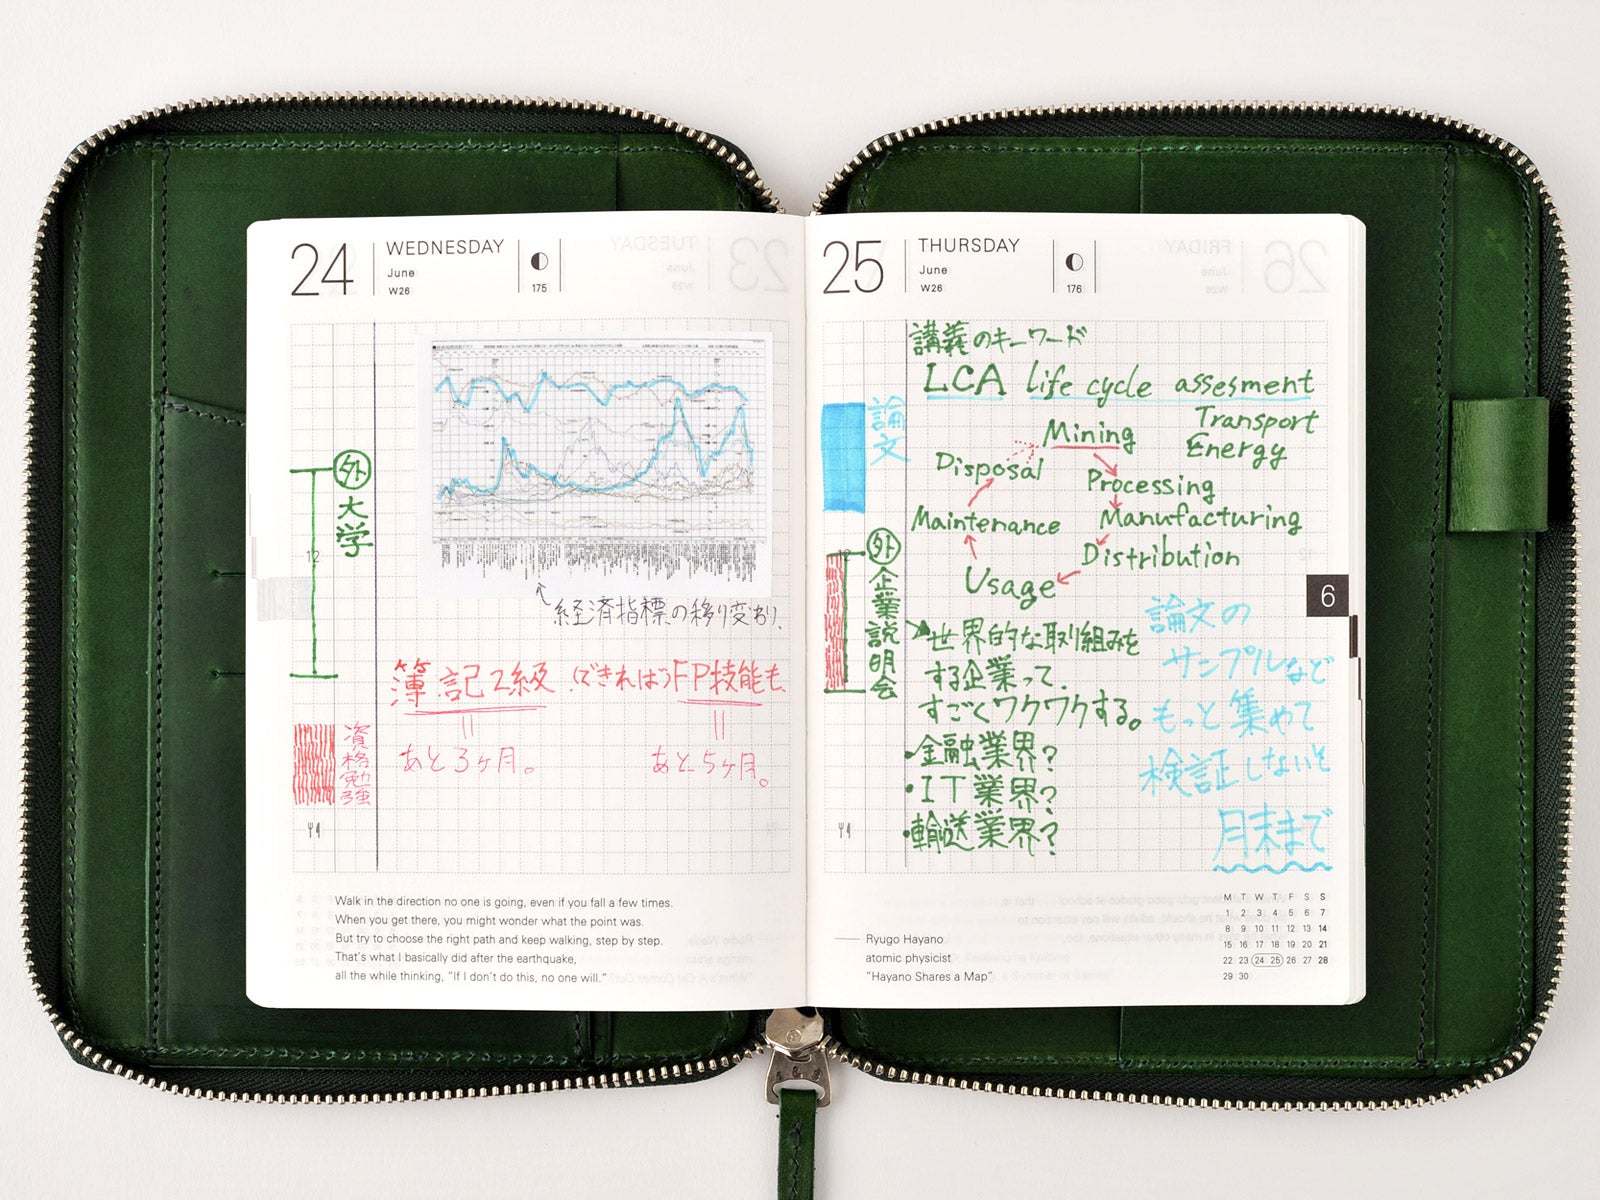 24 WEDNESDAY
June
W26
175
外
大学
12
経済指標の移り変わり、
簿記2級（できればFP技能も、
＝ ＝
あと3ヶ月。 あと5ヶ月。
資格勉強
Walk in the direction no one is going, even if you fall a few times.
When you get there, you might wonder what the point was.
But try to choose the right path and keep walking, step by step.
That's what I basically did after the earthquake,
all the while thinking, "If I don't do this, no one will."
25 THURSDAY
June
W26
176
講義のキーワード
LCA life cycle assesment
論文
Transport
Energy
Mining
Processing
Manufacturing
Distribution
Usage
Maintenance
Disposal
12
外
企業説明会
世界的な取り組みを
する企業って、
すごくワクワクする。
・金融業界?
・IT業界?
・輸送業界?
論文の
サンプルなど
もっと集めて
検証しないと
月末まで
6
Ryugo Hayano
atomic physicist
"Hayano Shares a Map"
M T W T F S S
1 2 3 4 5 6 7
8 9 10 11 12 13 14
15 16 17 18 19 20 21
22 23 24 25 26 27 28
29 30